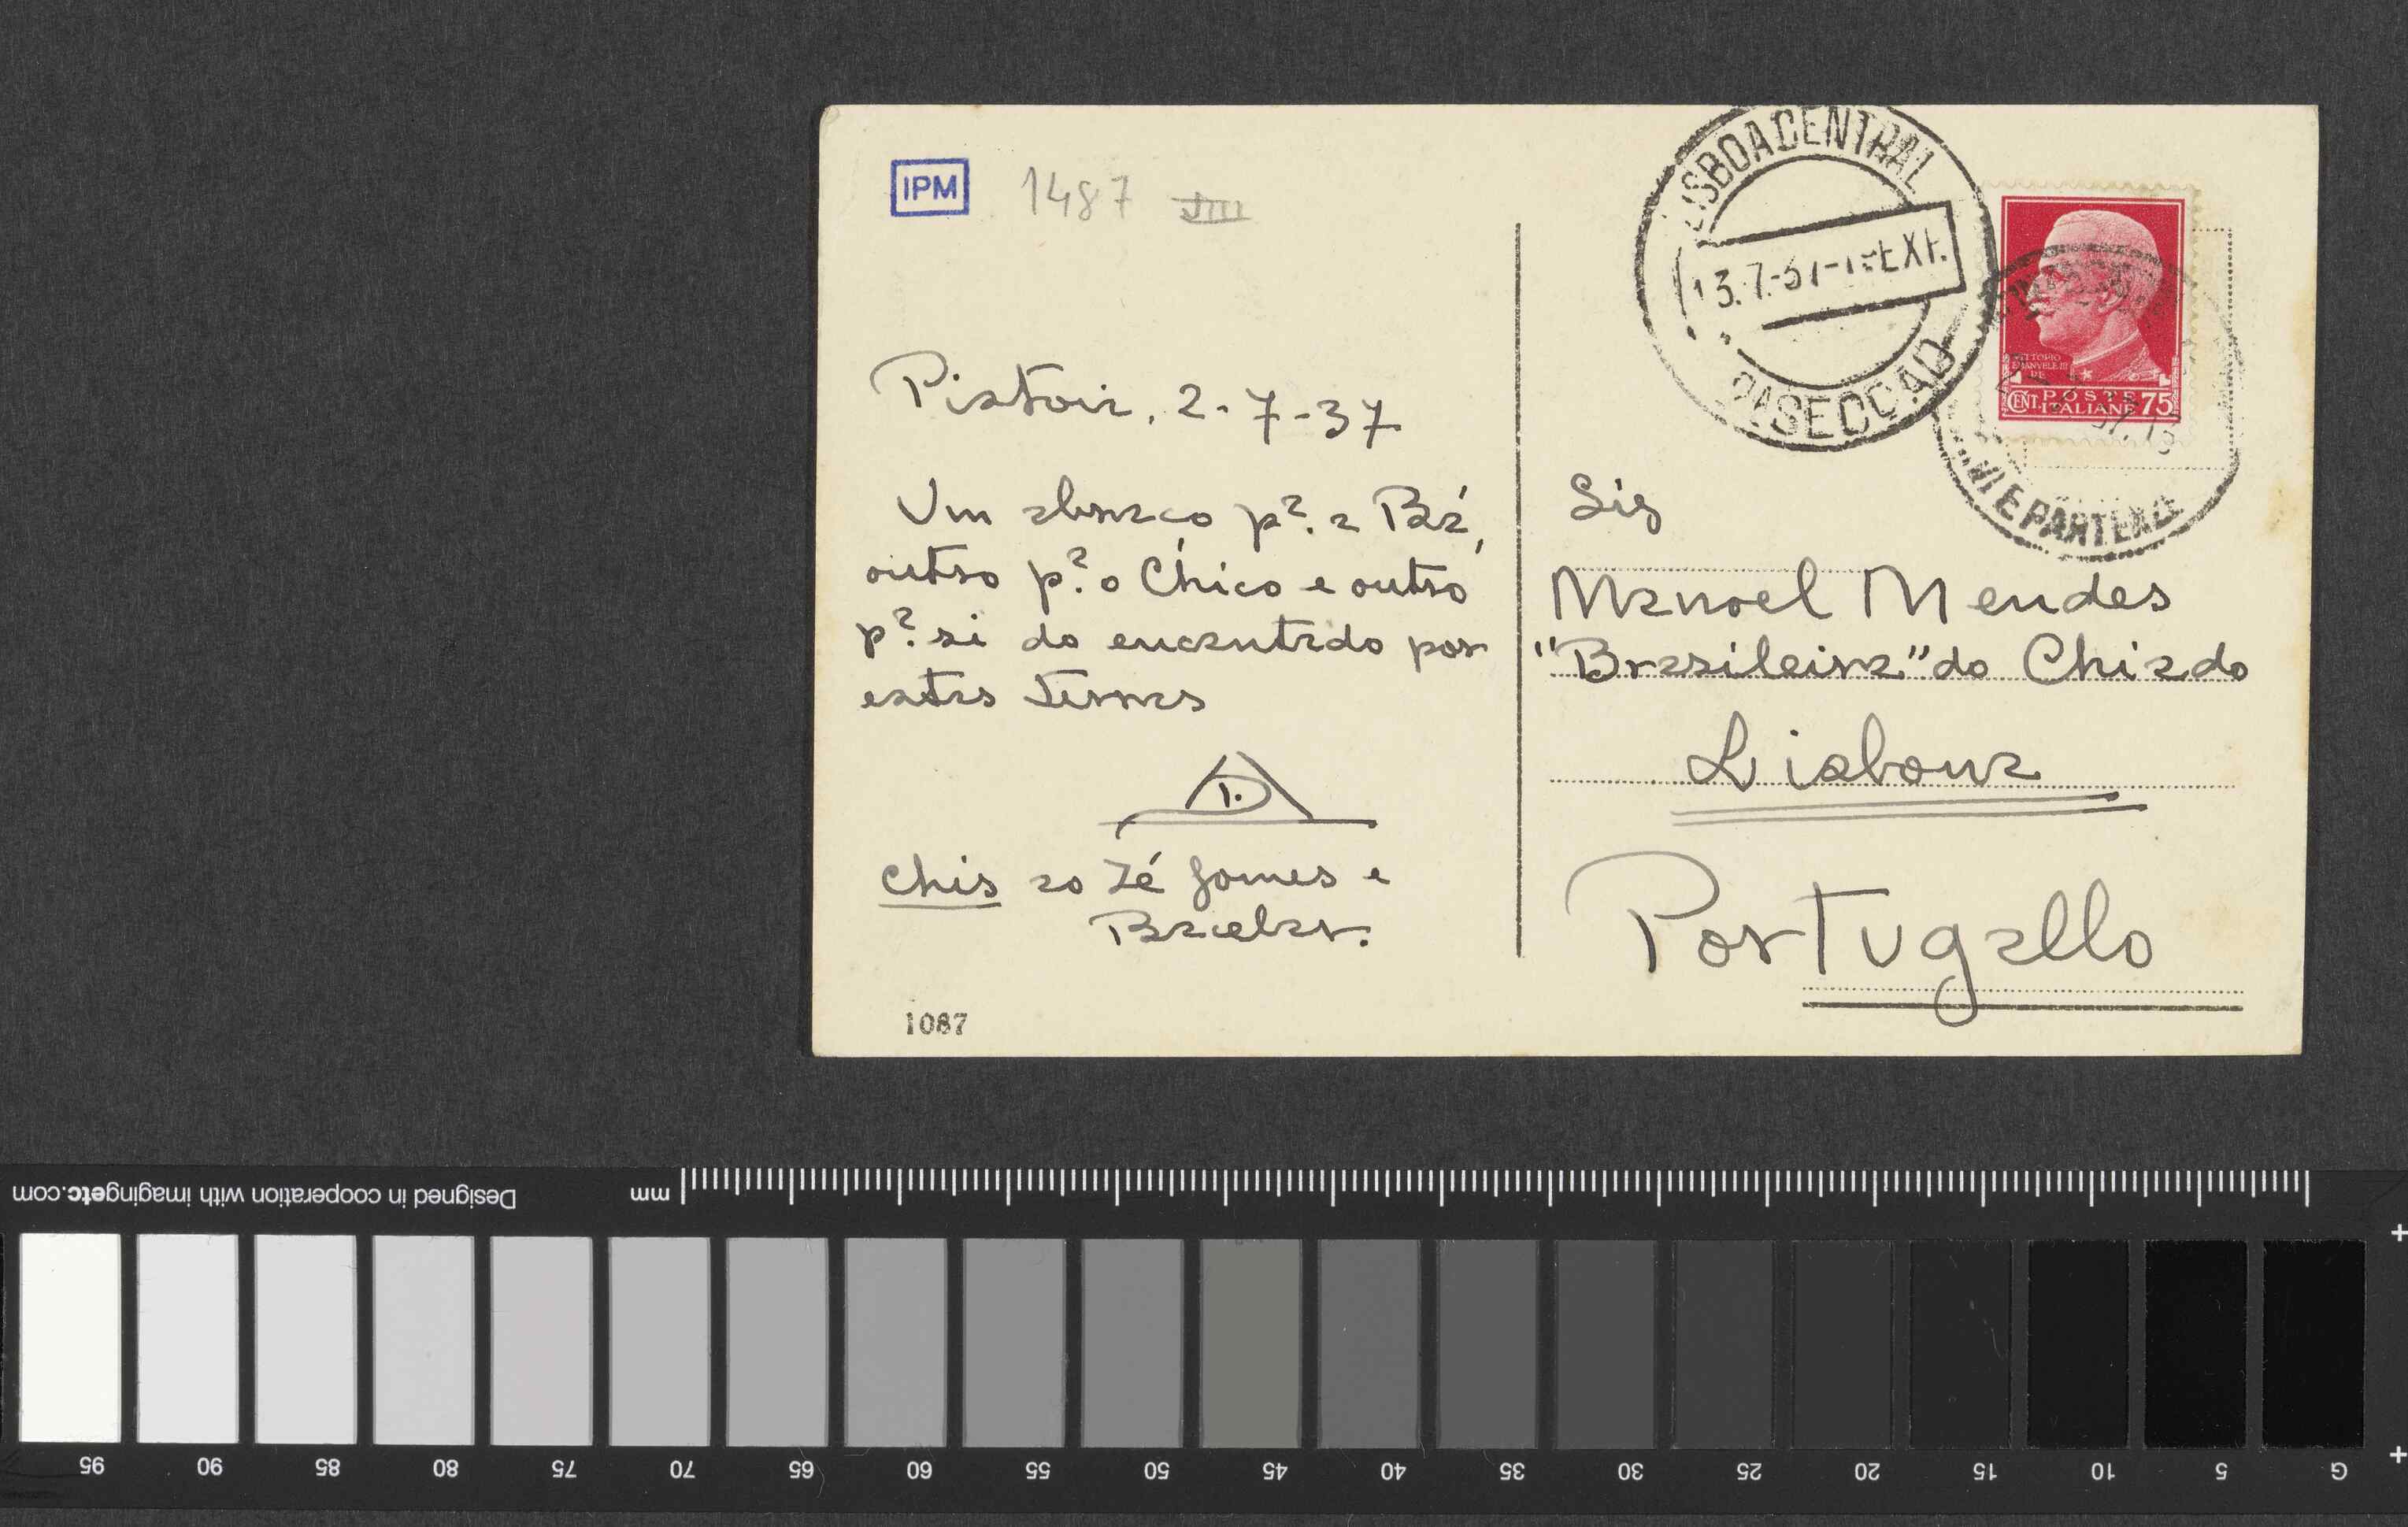 IPM 1487
LISBOA CENTRAL
13.7.37
2ª SECÇÃO
VITTORIO
EMANVELE III
RE
POSTE
CENT. ITALIANE 75
E PARTENZE
Pistoia, 2-7-37
Um abraço pª. a Bá,
outro pª. o Chico e outro
pª. si do encantado por
estas terras
Chis ao Zé Gomes e
Bacelar.
1087
Sig
Manoel Mendes
"Brasileira" do Chiado
Lisbona
Portugallo
mm
Designed in cooperation with imagingetc.com
95 90 85 80 75 70 65 60 55 50 45 40 35 30 25 20 15 10 5 G